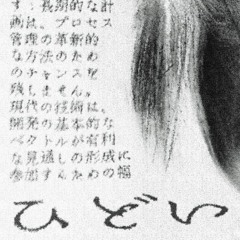 す：長期的な計
画は。プロセス
管理の革新的
な方法のため
のチャンスを
残しません。
現代の技術は、
開発の基本的な
ベクトルが有利
な見通しの形成に
参加するための幅
ひどい